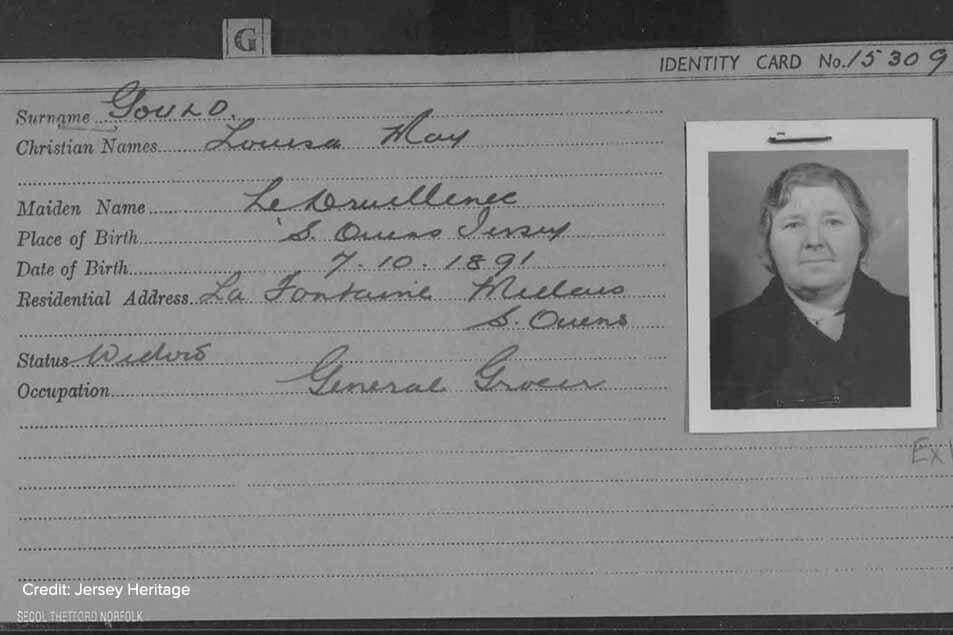 G
IDENTITY CARD No. 15309
Surname Gould.
Christian Names Louisa May
Maiden Name Le Druillenec
Place of Birth S. Ouens Jersey
Date of Birth 7.10.1891
Residential Address La Fontaine Millais
S. Ouens
Status Widow
Occupation General Grocer
Credit: Jersey Heritage
THETFORD NORFOLK